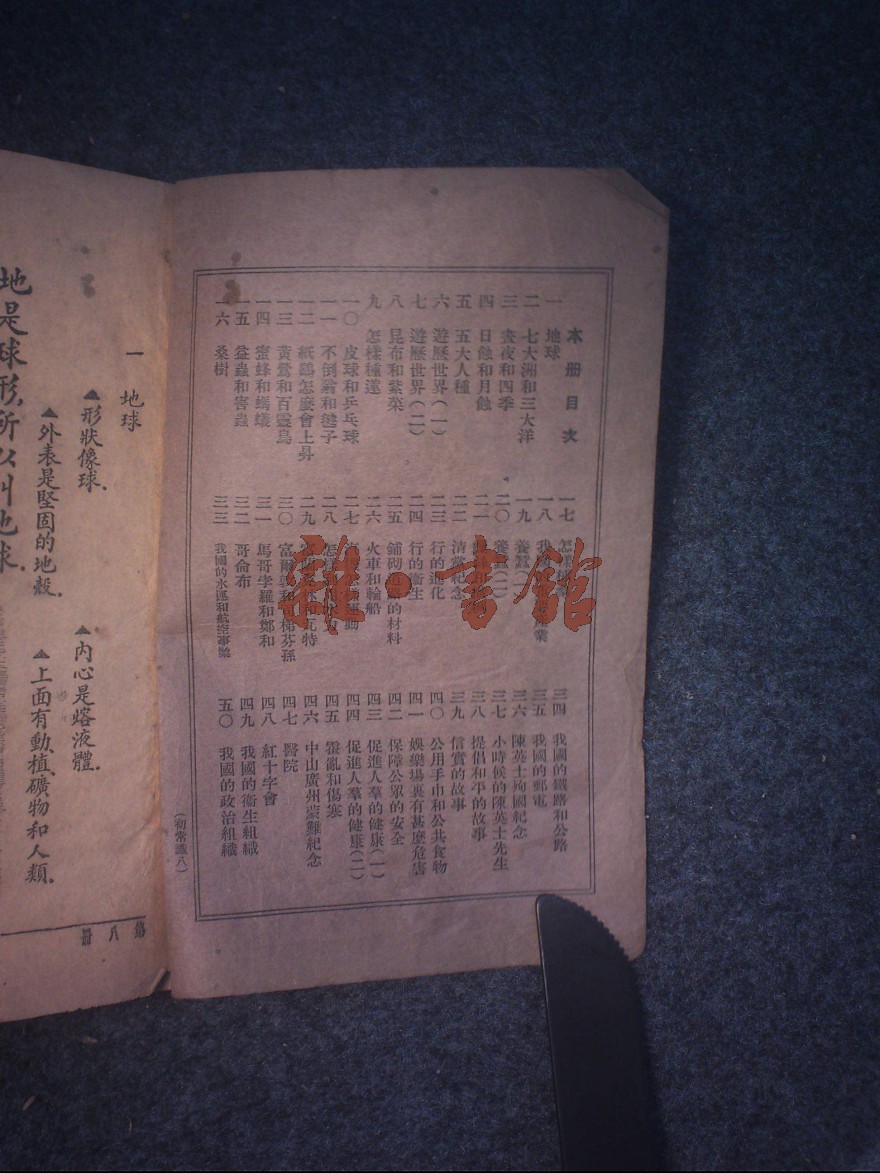 本册目次
一 地球
二 七大洲和三大洋
三 晝夜和四季
四 日蝕和月蝕
五 五大人種
六 遊歷世界(一)
七 遊歷世界(二)
八 昆布和紫菜
九 怎樣種蓮
一〇 皮球和乒乓球
一一 不倒翁和毽子
一二 紙鷂怎麼會上昇
一三 黃鶯和百靈鳥
一四 蜜蜂和螞蟻
一五 益蟲和害蟲
一六 桑樹
一七 怎
一八 我 業
一九 養蠶
二〇 養蠶(二)
二一
二二 清黨紀念
二三 行的進化
二四 行的衞生
二五 鋪砌 的材料
二六 火車和輪船
二七 動
二八 怎
二九 瓦特
三〇 富爾敦和司梯芬孫
三一 馬哥孛羅和鄭和
三二 哥倫布
三三 我國的水運和航空事業
三四 我國的鐵路和公路
三五 我國的郵電
三六 陳英士殉國紀念
三七 小時候的陳英士先生
三八 提倡和平的故事
三九 信實的故事
四〇 公用手巾和公共食物
四一 娛樂場裏有甚麼危害
四二 保障公眾的安全
四三 促進人羣的健康(一)
四四 促進人羣的健康(二)
四五 霍亂和傷寒
四六 中山廣州蒙難紀念
四七 醫院
四八 紅十字會
四九 我國的衞生組織
五〇 我國的政治組織
(初常識八)
雜·書館
一 地球
▲形狀像球.
▲內心是熔液體.
▲外表是堅固的地殼.
▲上面有動、植、礦物和人類.
地是球形,所以叫地球.
第八册